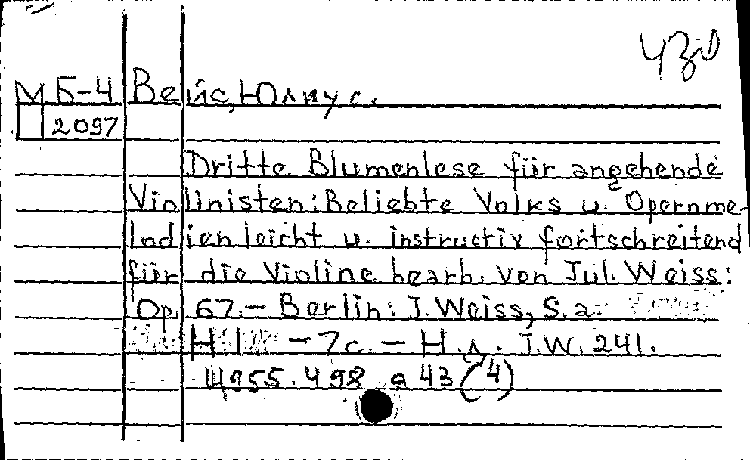 М Б-4 Вейс, Юлиус.
2097
Dritte Blumenlese für angehende
Violinisten: Beliebte Volks u. Opernme-
lodien leicht u. instructiv fortschreitend
für die Violine bearb. von Jul. Weiss:
Op. 67. - Berlin: J. Weiss, S.a.
H. 1 - 7c. - Н.д. J.W. 241.
43 (4)